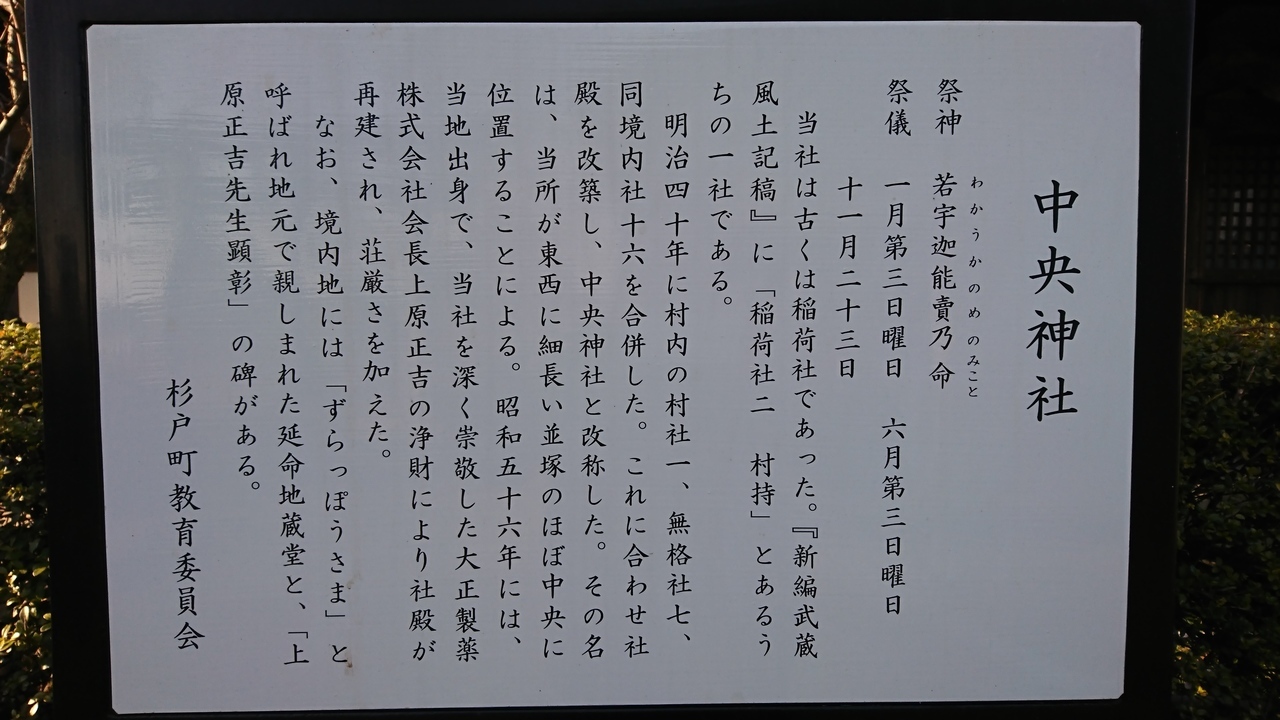 中央神社
わかうかのめのみこと
祭神　若宇迦能賣乃命
祭儀　一月第三日曜日　六月第三日曜日
十一月二十三日
当社は古くは稲荷社であった。『新編武蔵
風土記稿』に「稲荷社二　村持」とあるう
ちの一社である。
明治四十年に村内の村社一、無格社七、
同境内社十六を合併した。これに合わせ社
殿を改築し、中央神社と改称した。その名
は、当所が東西に細長い並塚のほぼ中央に
位置することによる。昭和五十六年には、
当地出身で、当社を深く崇敬した大正製薬
株式会社会長上原正吉の浄財により社殿が
再建され、荘厳さを加えた。
なお、境内地には「ずらっぽうさま」と
呼ばれ地元で親しまれた延命地蔵堂と、「上
原正吉先生顕彰」の碑がある。
杉戸町教育委員会